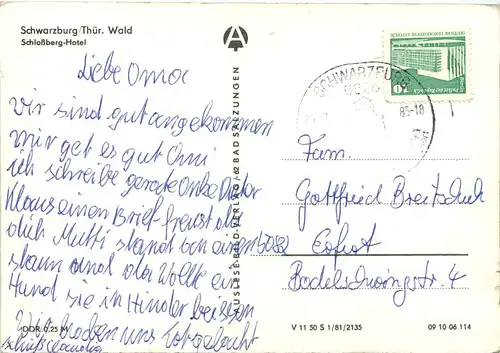 Schwarzburg/Thür. Wald
Schloßberg-Hotel
Liebe Oma
wir sind gut angekommen
mir get es gut Omi
ich schreibe gerade Onkel
Klaus einen Brief freust du
dich Mutti stand an einen
stann und da Wollte ein
Hund sie in Hinder beissen
Wir haben uns totgelacht
DDR 0,25 M
AUSLESE-BILD-VERLAG 62 BAD SALZUNGEN
SCHWARZBURG
85-18
10
Fam.
Gottfried Breitschuh
5082
Erfurt
Bodelschwinghstr. 4
V 11 50 S 1/81/2135
09 10 06 114